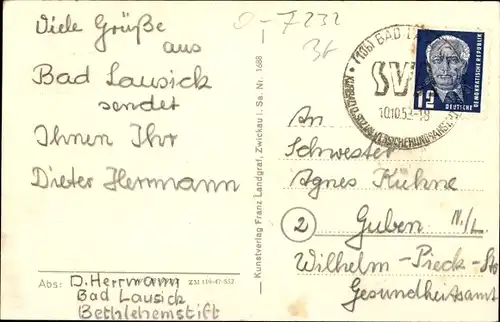 Viele Grüße
aus
Bad Lausick
sendet
Ihnen Ihr
Dieter Herrmann
Abs:
D. Herrmann
Bad Lausick
Bethlehemstift
Z 31 119-47-552
Kunstverlag Franz Landgraf, Zwickau i. Sa. Nr. 1688
(10b) BAD
SV
10.10.53-18
DEUTSCHE DEMOKRATISCHE REPUBLIK
12
An
Schwester
Agnes Kühne
2 Guben N./L.
Wilhelm-Pieck-Str
Gesundheitsamt